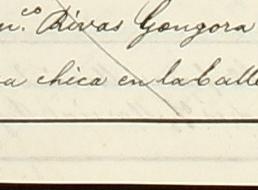 n.co Rivas Gongora
a chica en la Calle